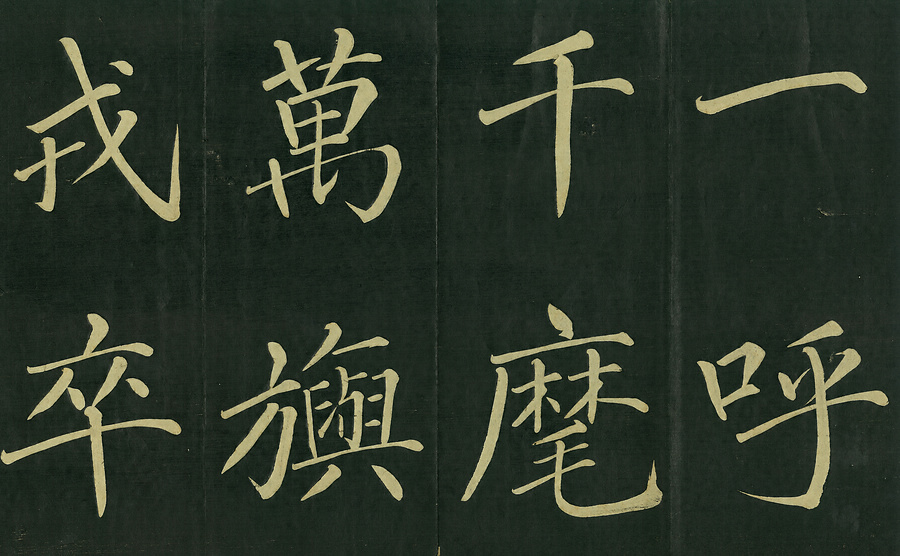 一呼
千麾
萬旟
戎卒